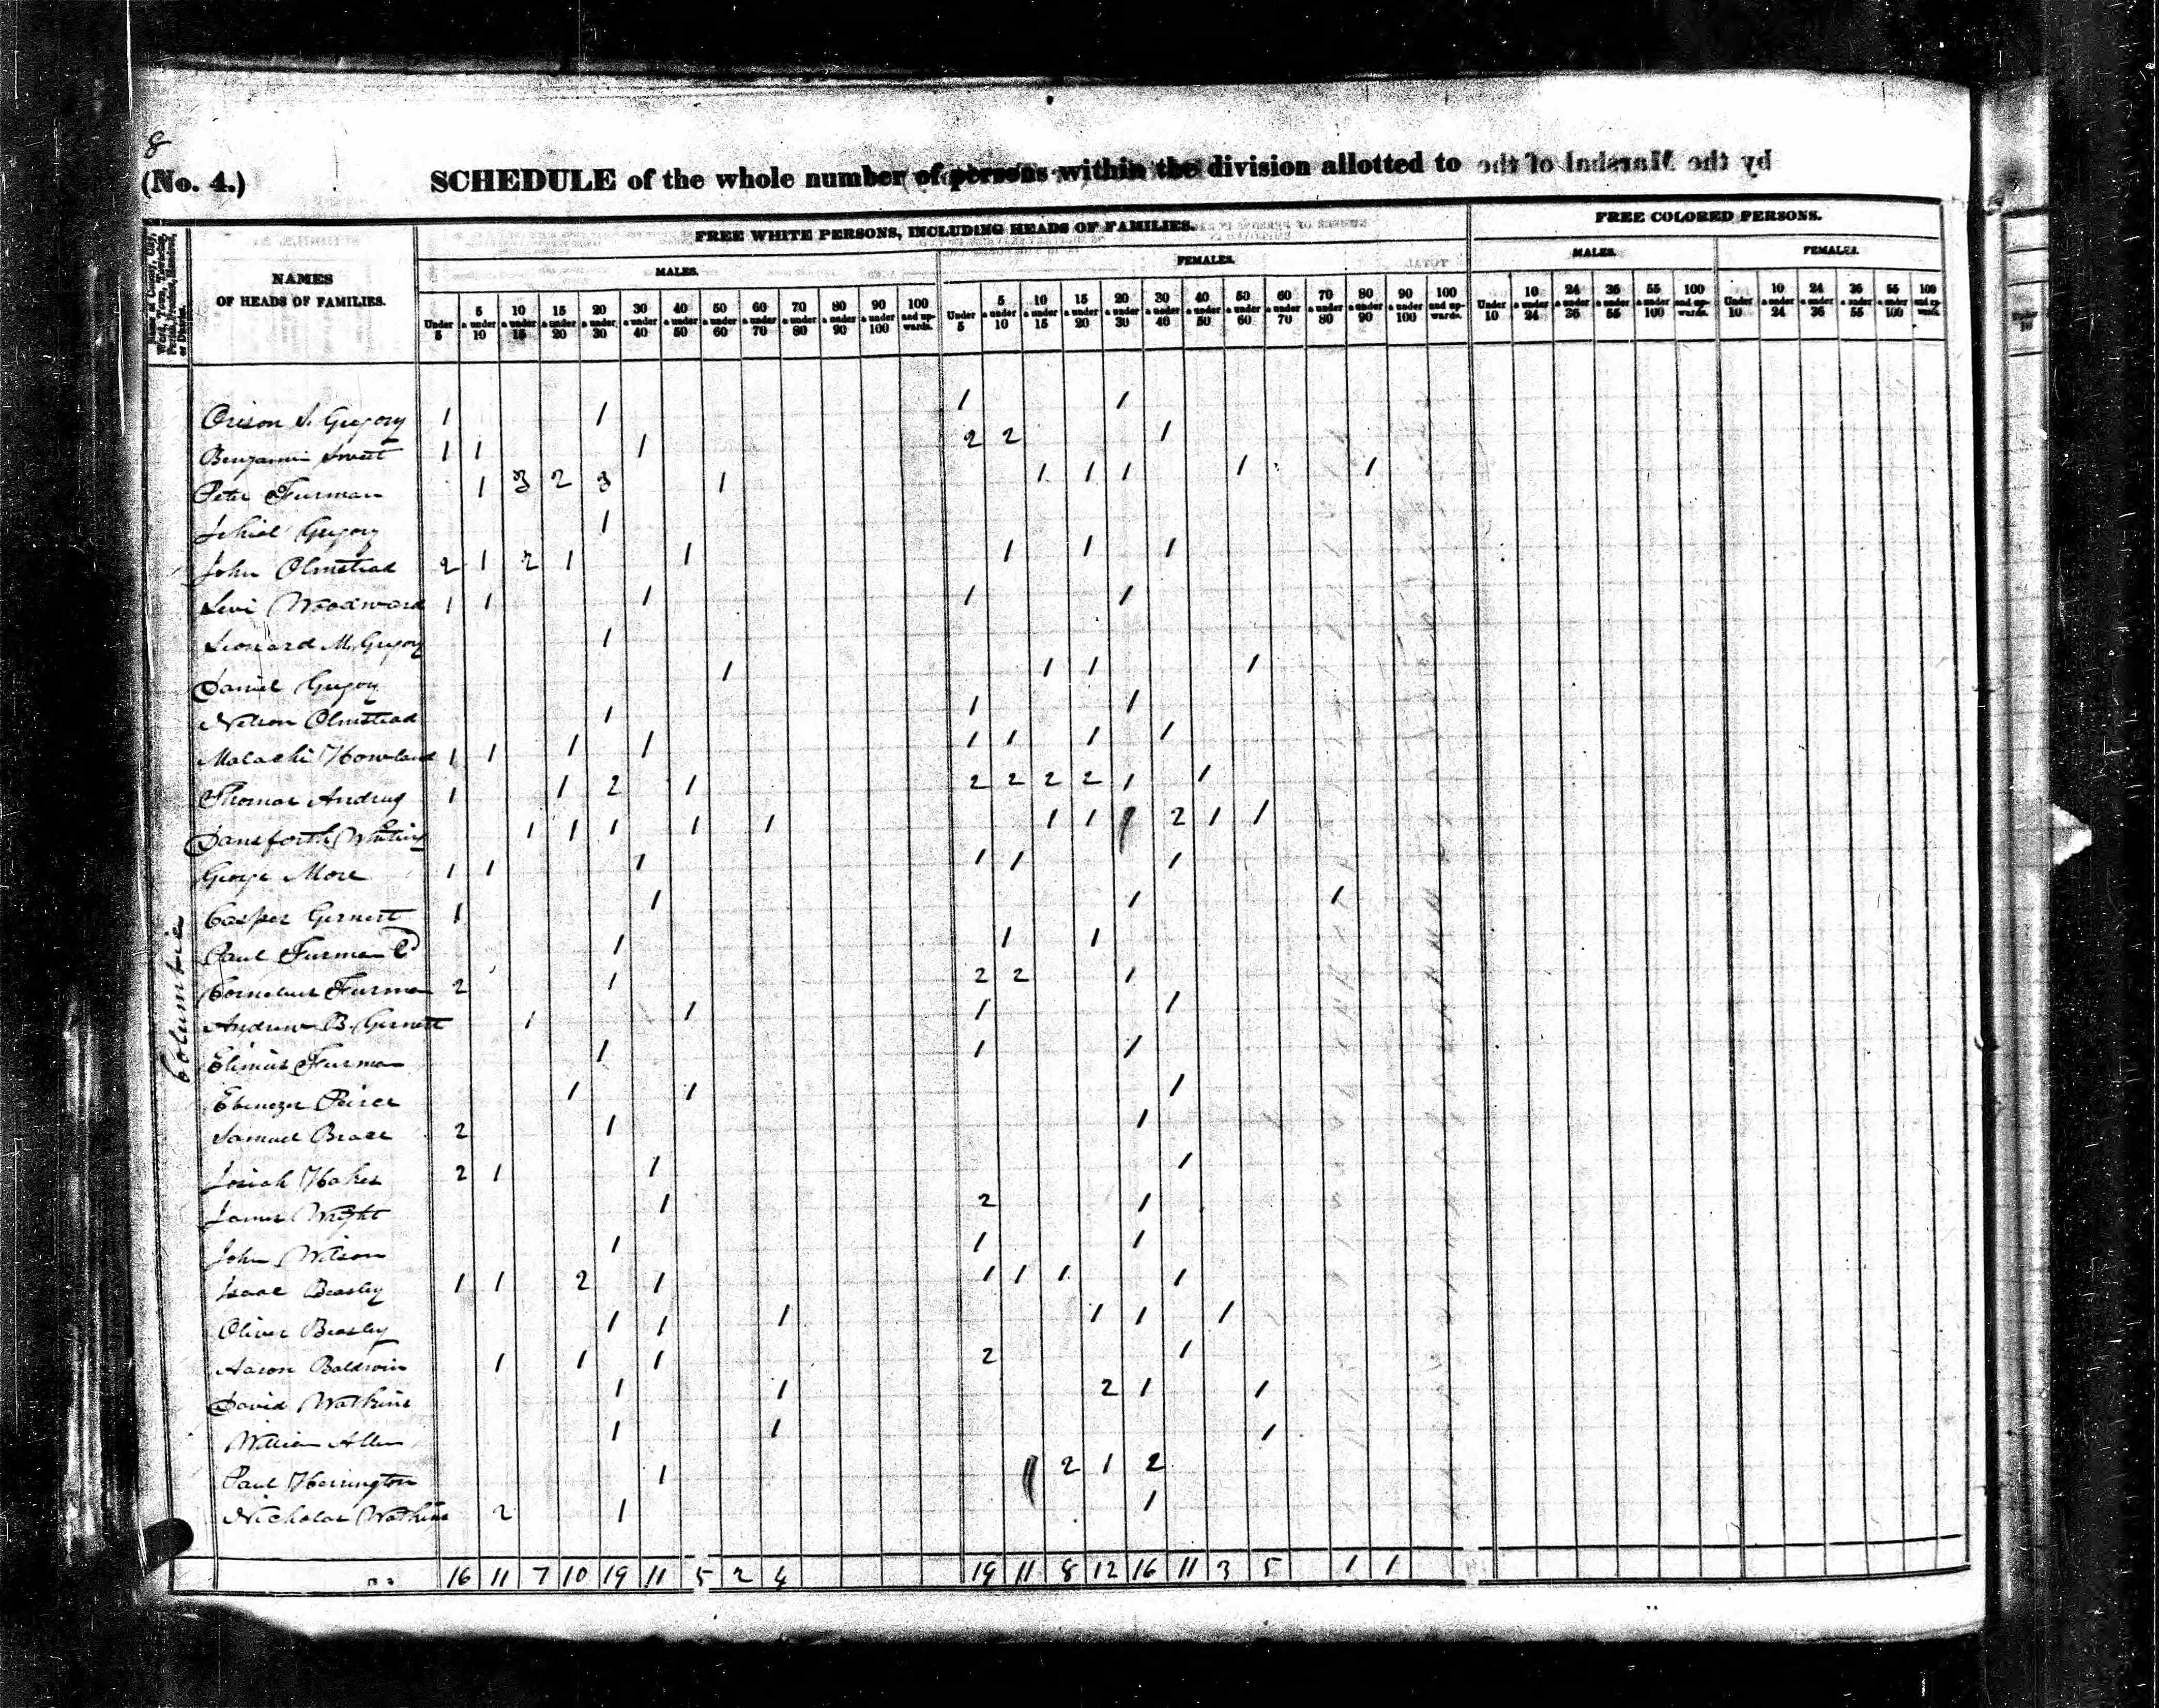 8
(No. 4.)
SCHEDULE of the whole number of persons within the division allotted to by the Marshal of the
FREE WHITE PERSONS, INCLUDING HEADS OF FAMILIES.
FREE COLORED PERSONS.
NAMES OF HEADS OF FAMILIES.
MALES. FEMALES. MALES. FEMALES.
Under 5 5 & under 10 10 & under 15 15 & under 20 20 & under 30 30 & under 40 40 & under 50 50 & under 60 60 & under 70 70 & under 80 80 & under 90 90 & under 100 100 and upwards. Under 5 5 & under 10 10 & under 15 15 & under 20 20 & under 30 30 & under 40 40 & under 50 50 & under 60 60 & under 70 70 & under 80 80 & under 90 90 & under 100 100 and upwards. Under 10 10 & under 24 24 & under 36 36 & under 55 55 & under 100 100 and upwards. Under 10 10 & under 24 24 & under 36 36 & under 55 55 & under 100 100 and upwards.
Columbia
Orison S. Gregory 1 1 1 1
Benjamin Sweet 1 1 1 2 2 1
Peter Furman 1 3 2 3 1 1 1 1 1 1
Jehial Gregory 1
John Olmstead 2 1 2 1 1 1 1 1
Levi Woodward 1 1 1 1 1
Leonard M. Gregory 1
Daniel Gregory 1 1 1 1
Nelson Olmstead 1 1 1
Malachi Howland 1 1 1 1 1 1 1 1
Thomas Andrus 1 1 2 1 2 2 2 2 1 1
Dansforth Whiting 1 1 1 1 1 1 1 1 2 1 1
George More 1 1 1 1 1 1
Casper Gernert 1 1 1 1
Paul Furman 1 1 1
Cornelius Furman 2 1 2 2 1
Andrew B. Gernert 1 1 1 1
Furman 1 1 1
Ebenezer Peirce 1 1 1
Samuel Brace 2 1 1
Josiah Hakes 2 1 1 1
James Wright 1 2 1
John Wilson 1 1 1
Isaac Beasley 1 1 2 1 1 1 1 1
Oliver Beasley 1 1 1 1 1 1
Aaron Baldwin 1 1 1 2 1
David Watkins 1 1 2 1 1
William Allen 1 1 1
Paul Herrington 1 1 2 1 2
Nicholas Watkins 2 1 1
16 11 7 10 19 11 5 2 4 19 11 8 12 16 11 3 5 1 1